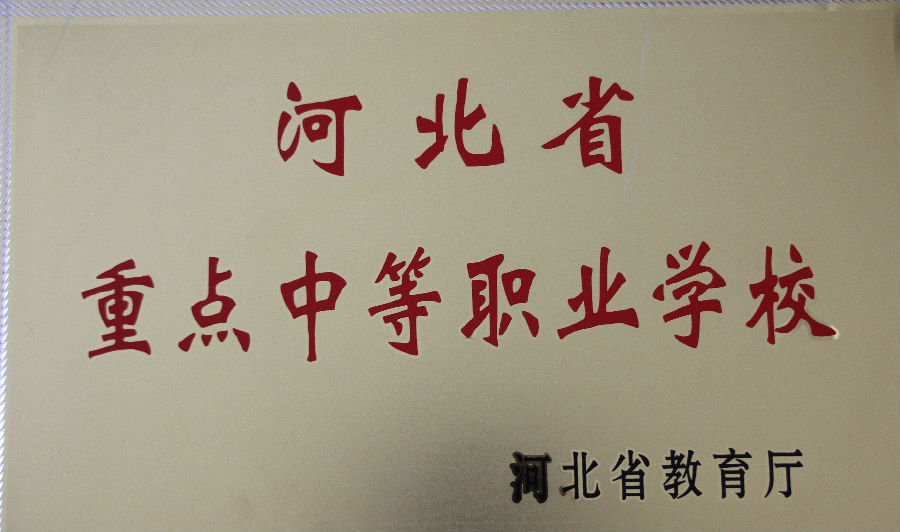 河北省
重点中等职业学校
河北省教育厅